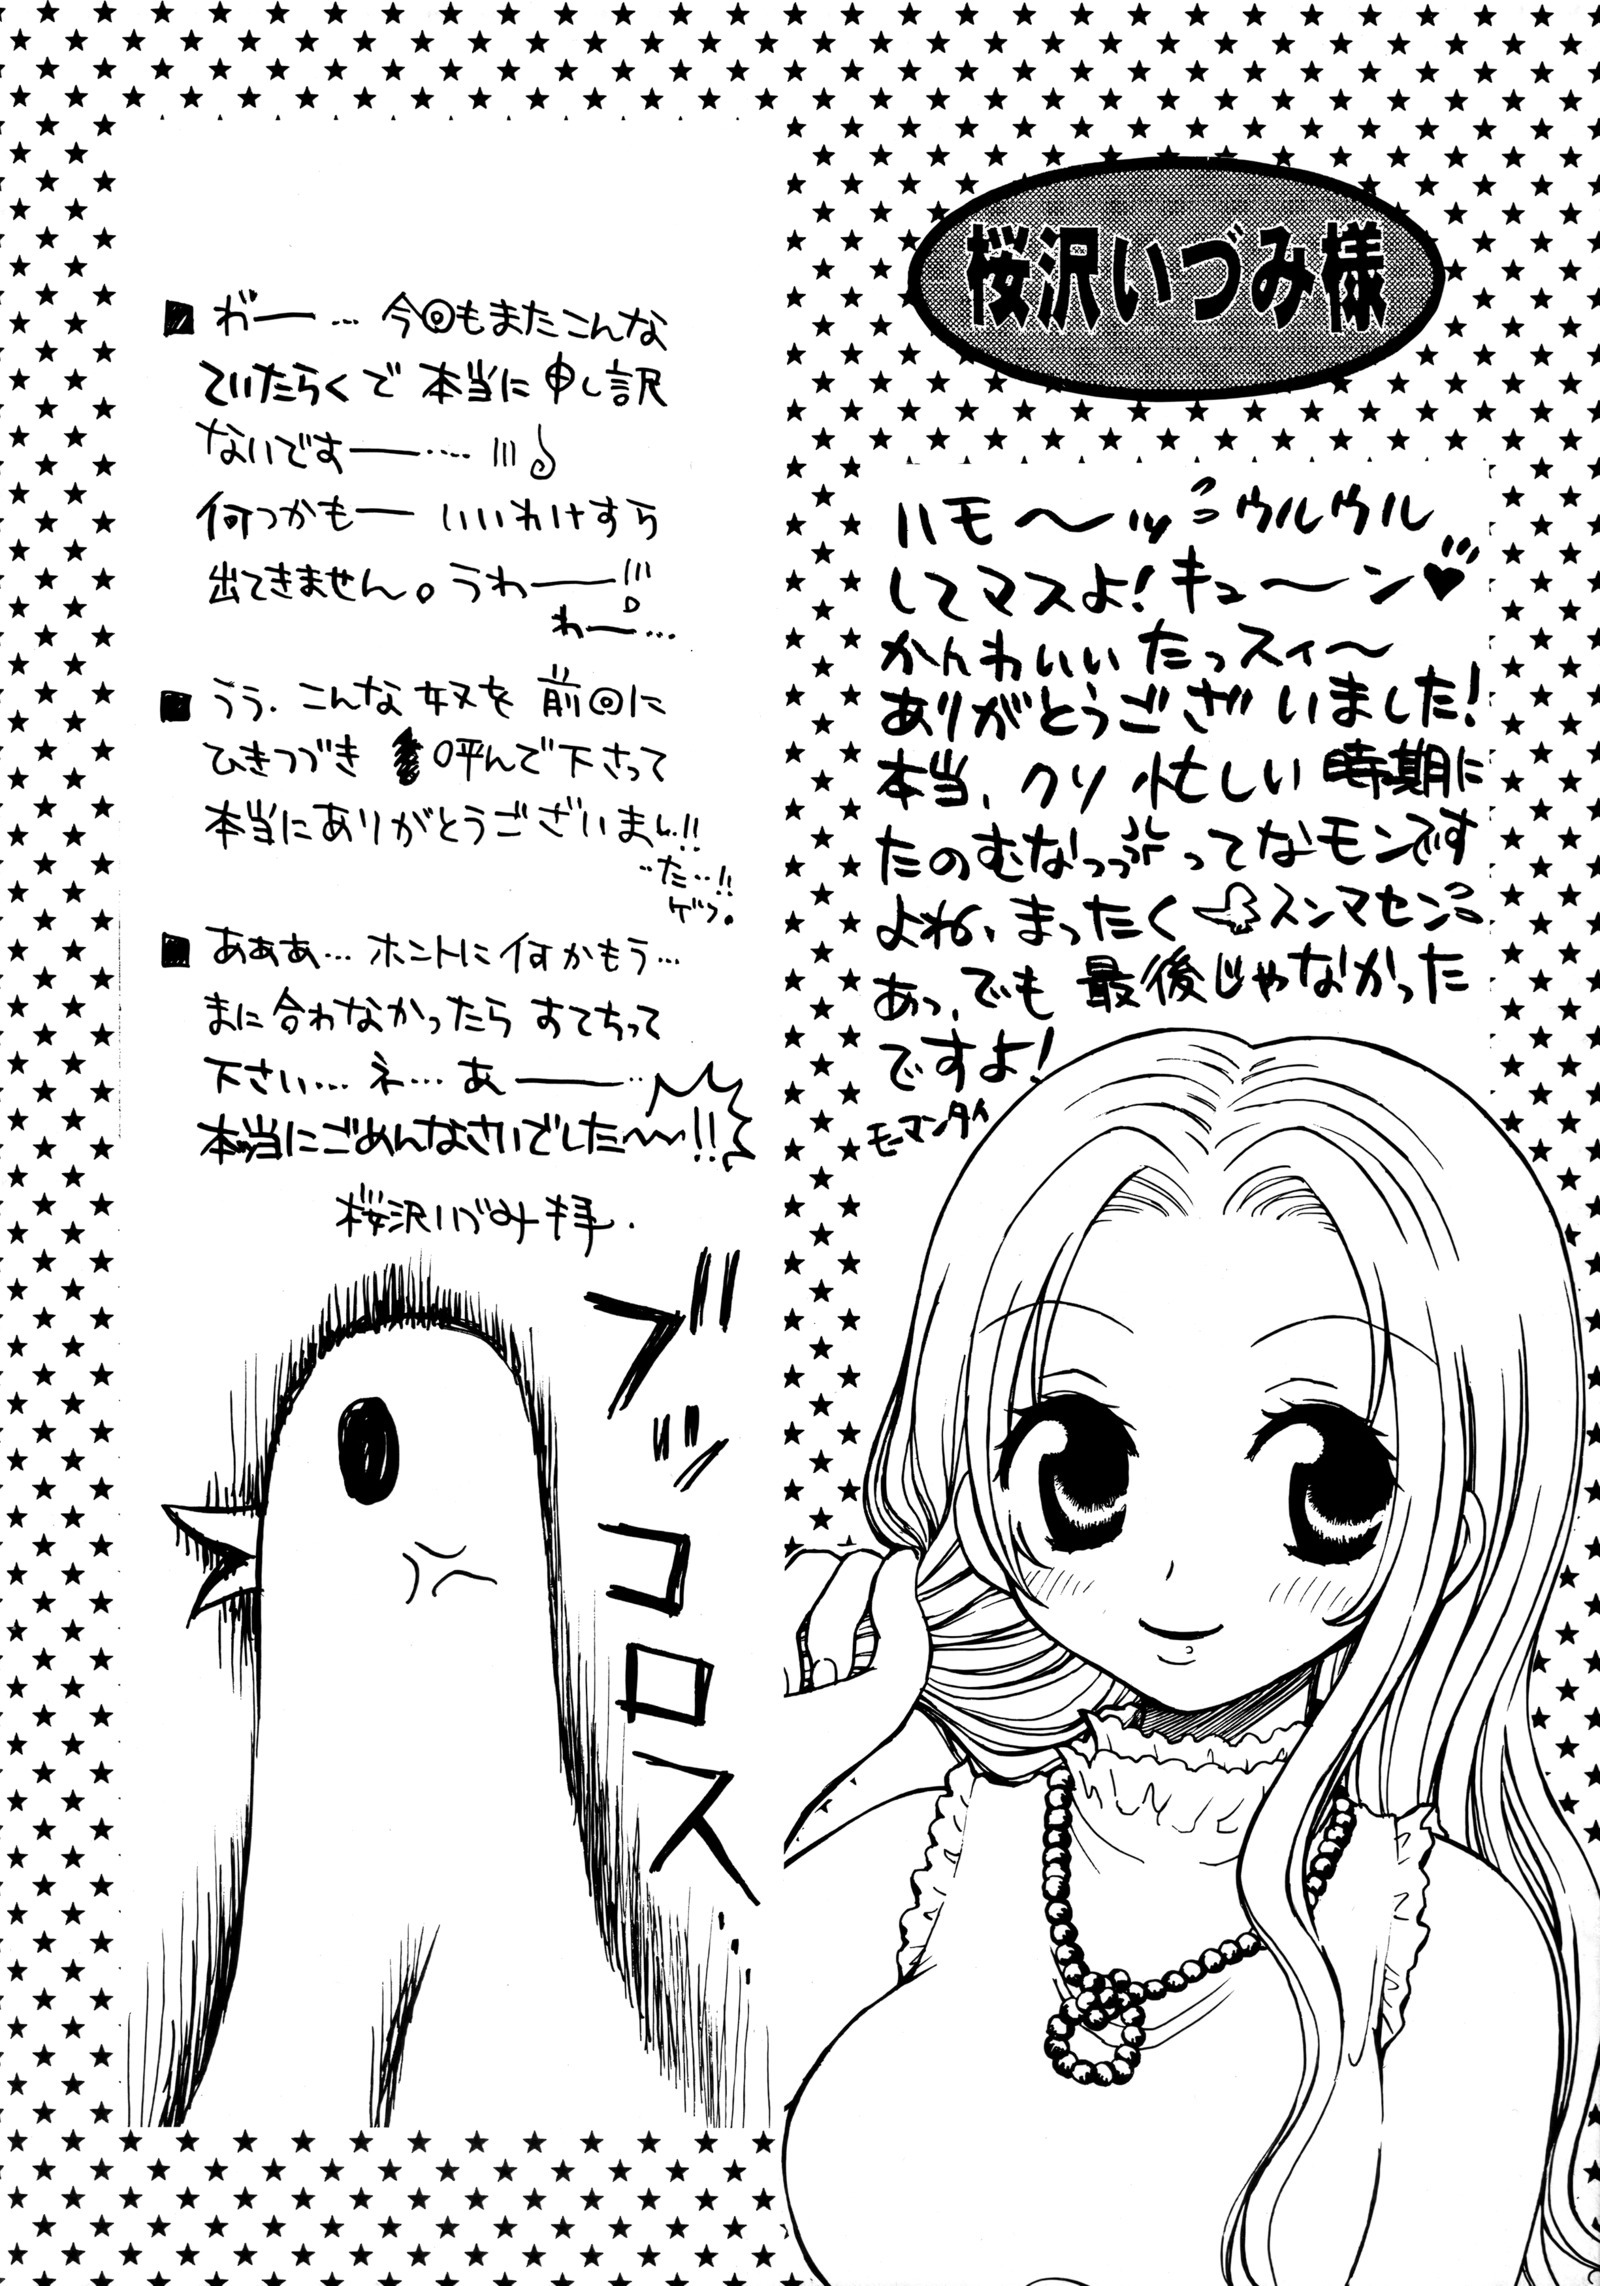 桜沢いづみ様
ハモ〜ッウルウル
してマスよ!キュ〜ン♥
かんわいいたっスィ〜
ありがとうございました!
本当、クソ忙しい時期に
たのむなっってなモンです
よね、まったくスンマセン
あっ、でも最後じゃなかった
ですよ!
モーマンタイ
■わ゛ー…今回もまたこんな
ていたらくで本当に申し訳
ないですー‥‥
何つかもーいいわけすら
出てきません。うわー
わー…
■うう、こんな奴を前回に
ひきつづき呼んで下さって
本当にありがとうございまし!!
‥た‥!!
ゲフ。
■あああ…ホントに何かもう…
まに合わなかったらすてちって
下さい…ネ…あー‥
本当にごめんなさいでした〜!!
桜沢いづみ拝.
ブッコロス…